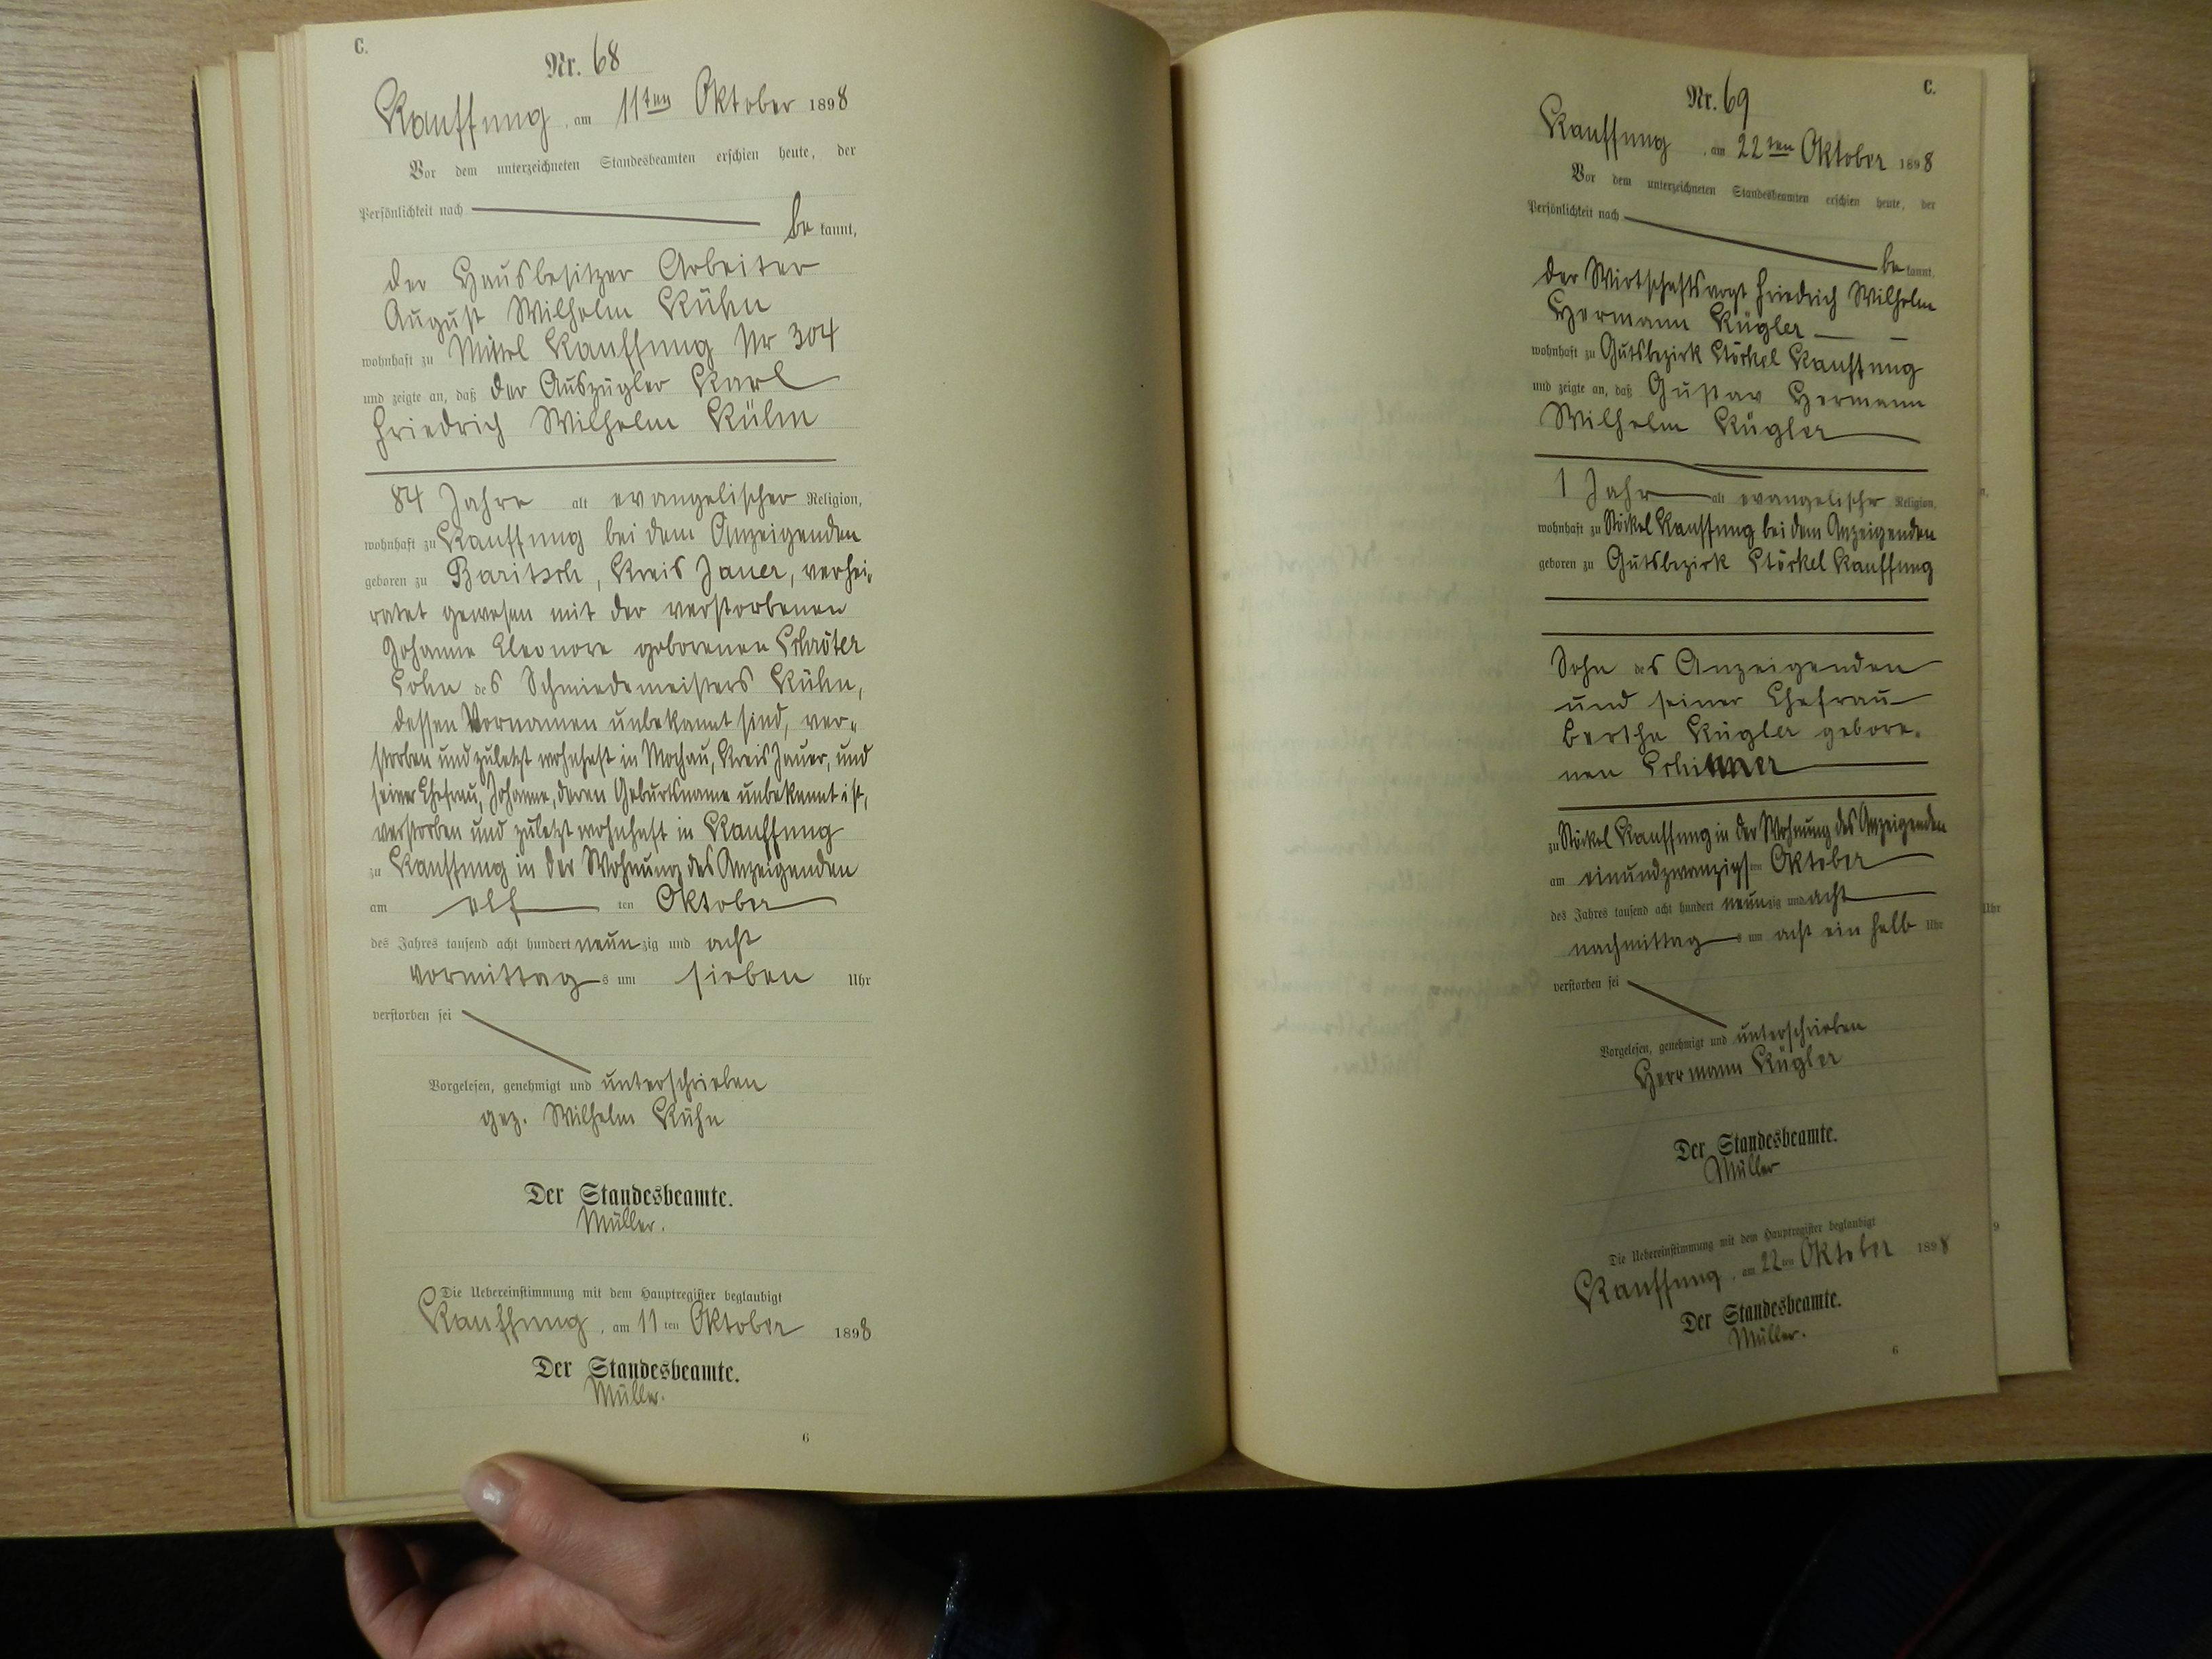 C.
Nr. 68
Kauffung, am 11ten Oktober 1898
Vor dem unterzeichneten Standesbeamten erschien heute, der
Persönlichkeit nach
be kannt,
der Hausbesitzer Arbeiter
August Wilhelm Kühn
wohnhaft zu Mittel Kauffung Nr 304
und zeigte an, daß der Auszügler Karl
Friedrich Wilhelm Kühn
84 Jahre alt evangelischer Religion,
wohnhaft zu Kauffung bei dem Anzeigenden
geboren zu Baritsch, Kreis Jauer, verhei-
ratet gewesen mit der verstorbenen
Johanne Eleonore geborenen Schröter
Sohn des Schmiedemeisters Kühn,
dessen Vornamen unbekannt sind, ver-
storben und zuletzt wohnhaft in Mochau, Kreis Jauer, und
seiner Ehefrau, Johanne, deren Geburtsname unbekannt ist,
verstorben und zuletzt wohnhaft in Kauffung
zu Kauffung in der Wohnung des Anzeigenden
am elf ten Oktober
des Jahres tausend acht hundert neun zig und acht
vormittag s um sieben Uhr
verstorben sei
Vorgelesen, genehmigt und unterschrieben
gez. Wilhelm Kühn
Der Standesbeamte.
Müller.
Die Uebereinstimmung mit dem Hauptregister beglaubigt
Kauffung, am 11 ten Oktober 1898
Der Standesbeamte.
Müller.
6
C.
Nr. 69
Kauffung, am 22ten Oktober 1898
Vor dem unterzeichneten Standesbeamten erschien heute, der
Persönlichkeit nach
be kannt,
der Wirtschaftsvogt Friedrich Wilhelm
Hermann Kügler
wohnhaft zu Gutsbezirk Stöckel Kauffung
und zeigte an, daß Gustav Hermann
Wilhelm Kügler
1 Jahr alt evangelischer Religion,
wohnhaft zu Stöckel Kauffung bei dem Anzeigenden
geboren zu Gutsbezirk Stöckel Kauffung
Sohn des Anzeigenden
und seiner Ehefrau
Bertha Kügler gebore-
nen
zu Stöckel Kauffung in der Wohnung des Anzeigenden
am einundzwanzigsten Oktober
des Jahres tausend acht hundert neunzig und acht
nachmittag s um acht ein halb Uhr
verstorben sei
Vorgelesen, genehmigt und unterschrieben
Herrmann Kügler
Der Standesbeamte.
Müller
Die Uebereinstimmung mit dem Hauptregister beglaubigt
Kauffung, am 22 ten Oktober 1898
Der Standesbeamte.
Müller.
6
Uhr
9